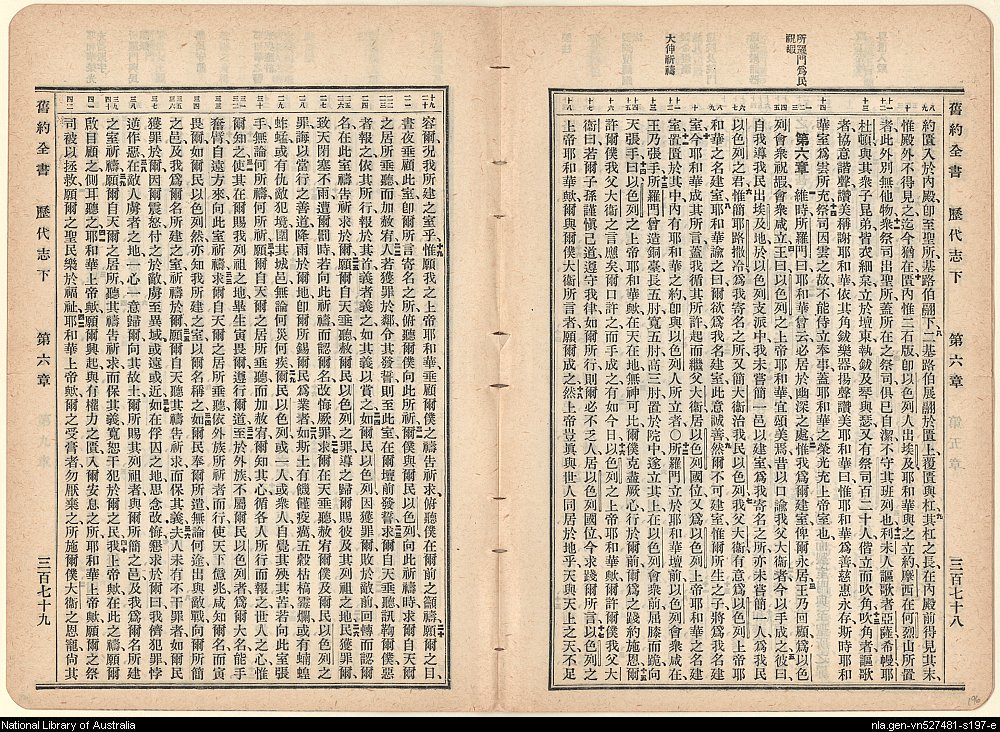 所羅門爲民
祝嘏
大伸祈禱
舊約全書
歷代志下
第六章
三百七十八
約匱入於內殿卽至聖所基路伯翮下二基路伯展翮於匱上覆匱與杠其杠之長在內殿前得見其末
惟殿外不得見之迄今猶在匱內惟二石版卽以色列人出埃及耶和華與之立約摩西在何烈山所置
者此外別無他物衆祭司出聖所蓋所在之祭司俱已自潔不守其班列也利未人謳歌者亞薩希幔耶
杜頓與其衆子昆弟皆衣細枲立於壇東執鈸及琴與瑟又有祭司百二十人偕立而吹角吹角者謳歌
者協意諧聲讚美稱謝耶和華依其角鈸樂器揚聲讚美耶和華曰惟耶和華爲善慈惠永存斯時耶和
華室爲雲所充祭司因雲之故不能侍立奉事蓋耶和華之榮光充上帝室也
第六章 維時所羅門曰耶和華曾云必居於幽深之處惟我爲爾建室俾爾永居王乃回顧爲以色
列會衆祝嘏會衆咸立王曰以色列之上帝耶和華宜頌美焉昔以口諭我父大衞者今以手成之彼曰
自我導我民出埃及地於以色列支派中我未嘗簡一邑以建室爲我寄名之所亦未嘗簡一人爲我民
以色列之君惟簡耶路撒冷爲我寄名之所又簡大衞治我民以色列我父大衞有意爲以色列上帝耶
和華之名建室耶和華諭之曰爾欲爲我名建室此意誠善然爾不可建室惟爾所生之子將爲我名建
室今耶和華成其所言蓋我循其所許起而繼父大衞居以色列國位又爲以色列上帝耶和華之名建
室置匱於其中內有耶和華之約卽與以色列人所立者〇所羅門立於耶和華壇前以色列會衆咸在
王乃張手所羅門曾造銅臺長五肘寬五肘高三肘置於院中遂立其上在以色列會衆前屈膝而跪向
天張手曰以色列之上帝耶和華歟在天在地無神可比爾僕克盡厥心行於爾前爾爲之踐約施恩爾
許爾僕我父大衞之言應矣爾口許之而手成之有如今日以色列之上帝耶和華歟爾許爾僕我父大
衞曰若爾子孫謹愼己道遵守我律如爾所行則爾必不乏人居以色列國位今求踐爾所言以色列之
上帝耶和華歟願爾與爾僕大衞所言者願爾成之然上帝豈眞與世人同居於地乎天與天上之天不足
舊約全書
歷代志下
第六章
三百七十九
容爾況我所建之室乎惟願我之上帝耶和華垂顧爾僕之禱告祈求俯聽僕在爾前之籲禱願爾之目
晝夜垂顧此室卽爾所言寄名之所俯聽爾僕向此所祈禱爾僕與爾民以色列向此祈禱時求爾自天爾
之居所垂聽而加赦有人若獲罪於鄰令其發誓則至此室在爾壇前發誓求爾自天垂聽訊鞫爾僕惡
者報之依其所行報於其首義者義之如其義以賞之如爾民以色列因獲罪爾敗於敵前回轉而認爾
名在此室禱告祈求於爾願爾自天垂聽赦爾民以色列之罪導之歸爾賜彼及其列祖之地民獲罪爾
致天閉塞不雨遭爾罰時若向此祈禱而認爾名改悔厥罪求爾在天垂聽赦宥爾僕及爾民以色列之
罪誨以當行之善道降雨於爾地卽爾所錫爾民爲業者如斯土有饑饉疫癘五穀枯槁霉爛或有蝻蝗
蚱蜢或有仇敵犯境圍其城邑無論何災何疾爾民以色列或一人或衆人自覺其殃其苦若向此室張
手無論何所禱何所祈願爾自天爾之居所垂聽而加赦宥爾知其心循各人所行而報之世人之心惟
爾知之使其在爾賜我列祖之地畢生寅畏爾遵行爾道至於外族不屬爾民以色列者爲爾大名能手
奮臂自遠方來向此室祈禱求爾自天爾之居所垂聽依外族所祈者而行使天下億兆咸知爾名而寅
畏爾如爾民以色列然亦知我所建之室以爾名稱之如爾民奉爾所遣無論何途出與敵戰向爾所簡
之邑及我爲爾名所建之室祈禱於爾願爾自天聽其禱告祈求而保其義夫人未有不干罪者如爾民
獲罪於爾因爾震怒付之於敵虜至異域或遠或近如在俘囚之地思念改悔懇求於爾曰我儕犯罪悖
逆作惡在敵人虜者之地一心一意歸爾向其故土爾所賜其列祖者與爾所簡之邑及我爲爾名所建
之室祈禱願爾自天爾之居所聽其禱告祈求而保其義寬恕干犯於爾之民我上帝歟在此禱之祭
啟目顧之側耳聽之耶和華上帝歟願爾興起與有權力之匱入爾安息之所耶和華上帝歟願爾之祭
司被以拯救願爾之聖民樂於福祉耶和華上帝歟爾之受膏者勿厭棄之所施爾僕大衞之恩寵尙其
National Library of Australia
nla.gen-vn527481-s197-e
196